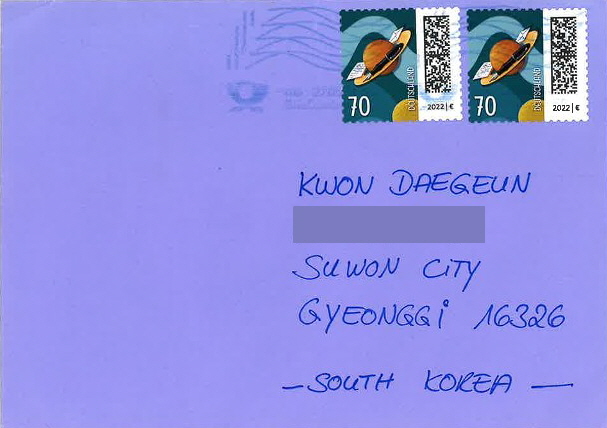 70
DEUTSCHLAND
2022 | €
70
DEUTSCHLAND
2022 | €
KWON DAEGEUN
SUWON CITY
GYEONGGI 16326
— SOUTH KOREA —